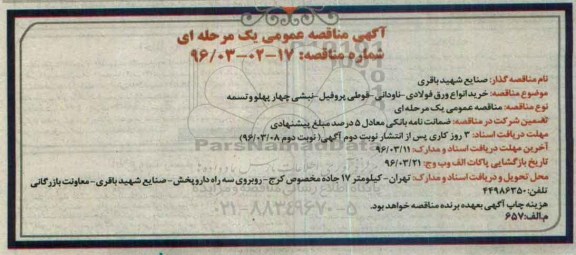 آگهی مناقصه عمومی یک مرحله ای
شماره مناقصه: ۱۷-۰۲-۹۶/۰۳
نام مناقصه گذار: صنایع شهید باقری
موضوع مناقصه: خرید انواع ورق فولادی-ناودانی-قوطی پروفیل-نبشی چهار پهلو و تسمه
نوع مناقصه: مناقصه عمومی یک مرحله ای
تضمین شرکت در مناقصه: ضمانت نامه بانکی معادل ۵ درصد مبلغ پیشنهادی
مهلت دریافت اسناد: ۳ روز کاری پس از انتشار نوبت دوم آگهی( نوبت دوم ۹۶/۰۳/۰۸)
آخرین مهلت دریافت اسناد و مدارک: ۹۶/۰۳/۱۱
تاریخ بازگشایی پاکات الف وب وج: ۹۶/۰۳/۲۱
محل تحویل و دریافت اسناد و مدارک: تهران-کیلومتر ۱۷ جاده مخصوص کرج-روبروی سه راه داروپخش-صنایع شهید باقری-معاونت بازرگانی
تلفن: ۴۴۹۸۶۳۵۰
هزینه چاپ آگهی بعهده برنده مناقصه خواهد بود.
م.الف: ۶۵۷
ParsNamadData
پایگاه اطلاع رسانی مناقصه و مزایده
۰۲۱-۸۸۳۴۹۶۷۰-۵